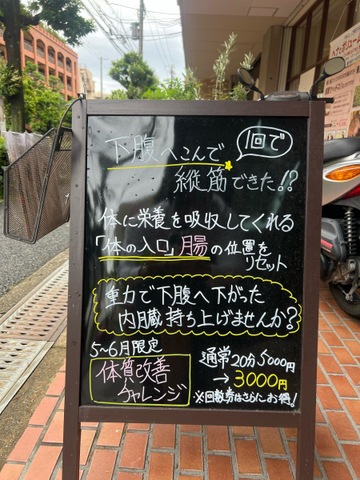 下腹へこんで
1回で
縦筋できた!!
体に栄養を吸収してくれる
「体の入口」腸の位置を
リセット
重力で下腹へ下がった
内臓持ち上げませんか?
5~6月限定
体質改善
チャレンジ
通常20分5000円
→3000円
※回数券はさらにお得!